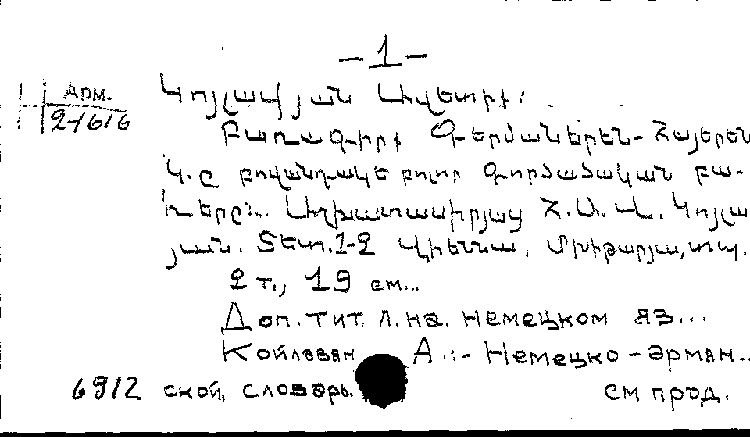 - 1 -
Арм.
2-1616
Կոյլավյան Ավետիք.
Բառագիրք Գերմաներեն- Հայերեն
Կ.ը բովանդակե բոլոր գործածական բա-
ռերը... Աշխատասիրյաց Հ.Ա.Վ. Կոյլա
յան. Տետ.1-2 Վիեննա, Մխիթարյա, տպ.
2 т., 19 см...
Доп. тит. л. на. немецком яз...
Койлавян А.:- Немецко-армян..
6912 ской, словарь.
см прод.